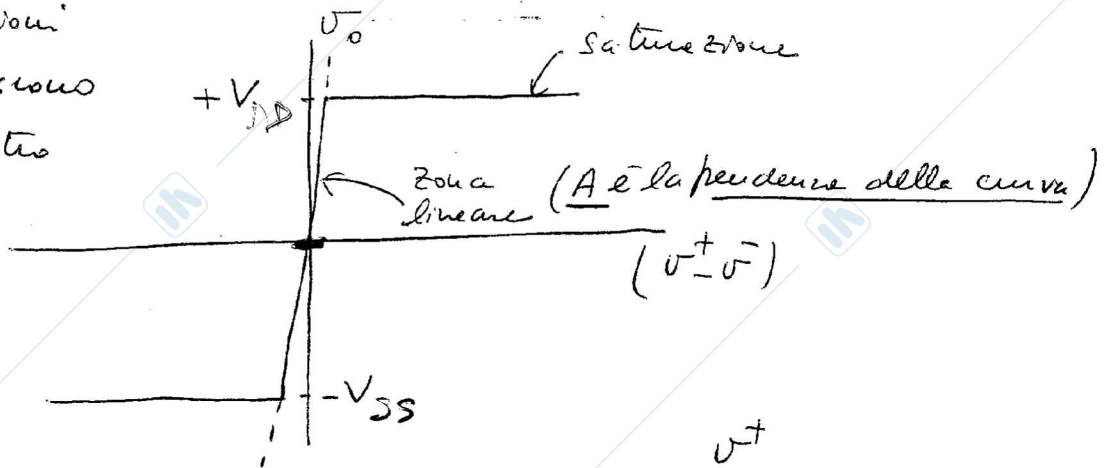 v₀
saturazione
+V_DD
tro
zona
lineare
(A è la pendenza della curva)
(v⁺-v⁻)
-V_SS
v⁺